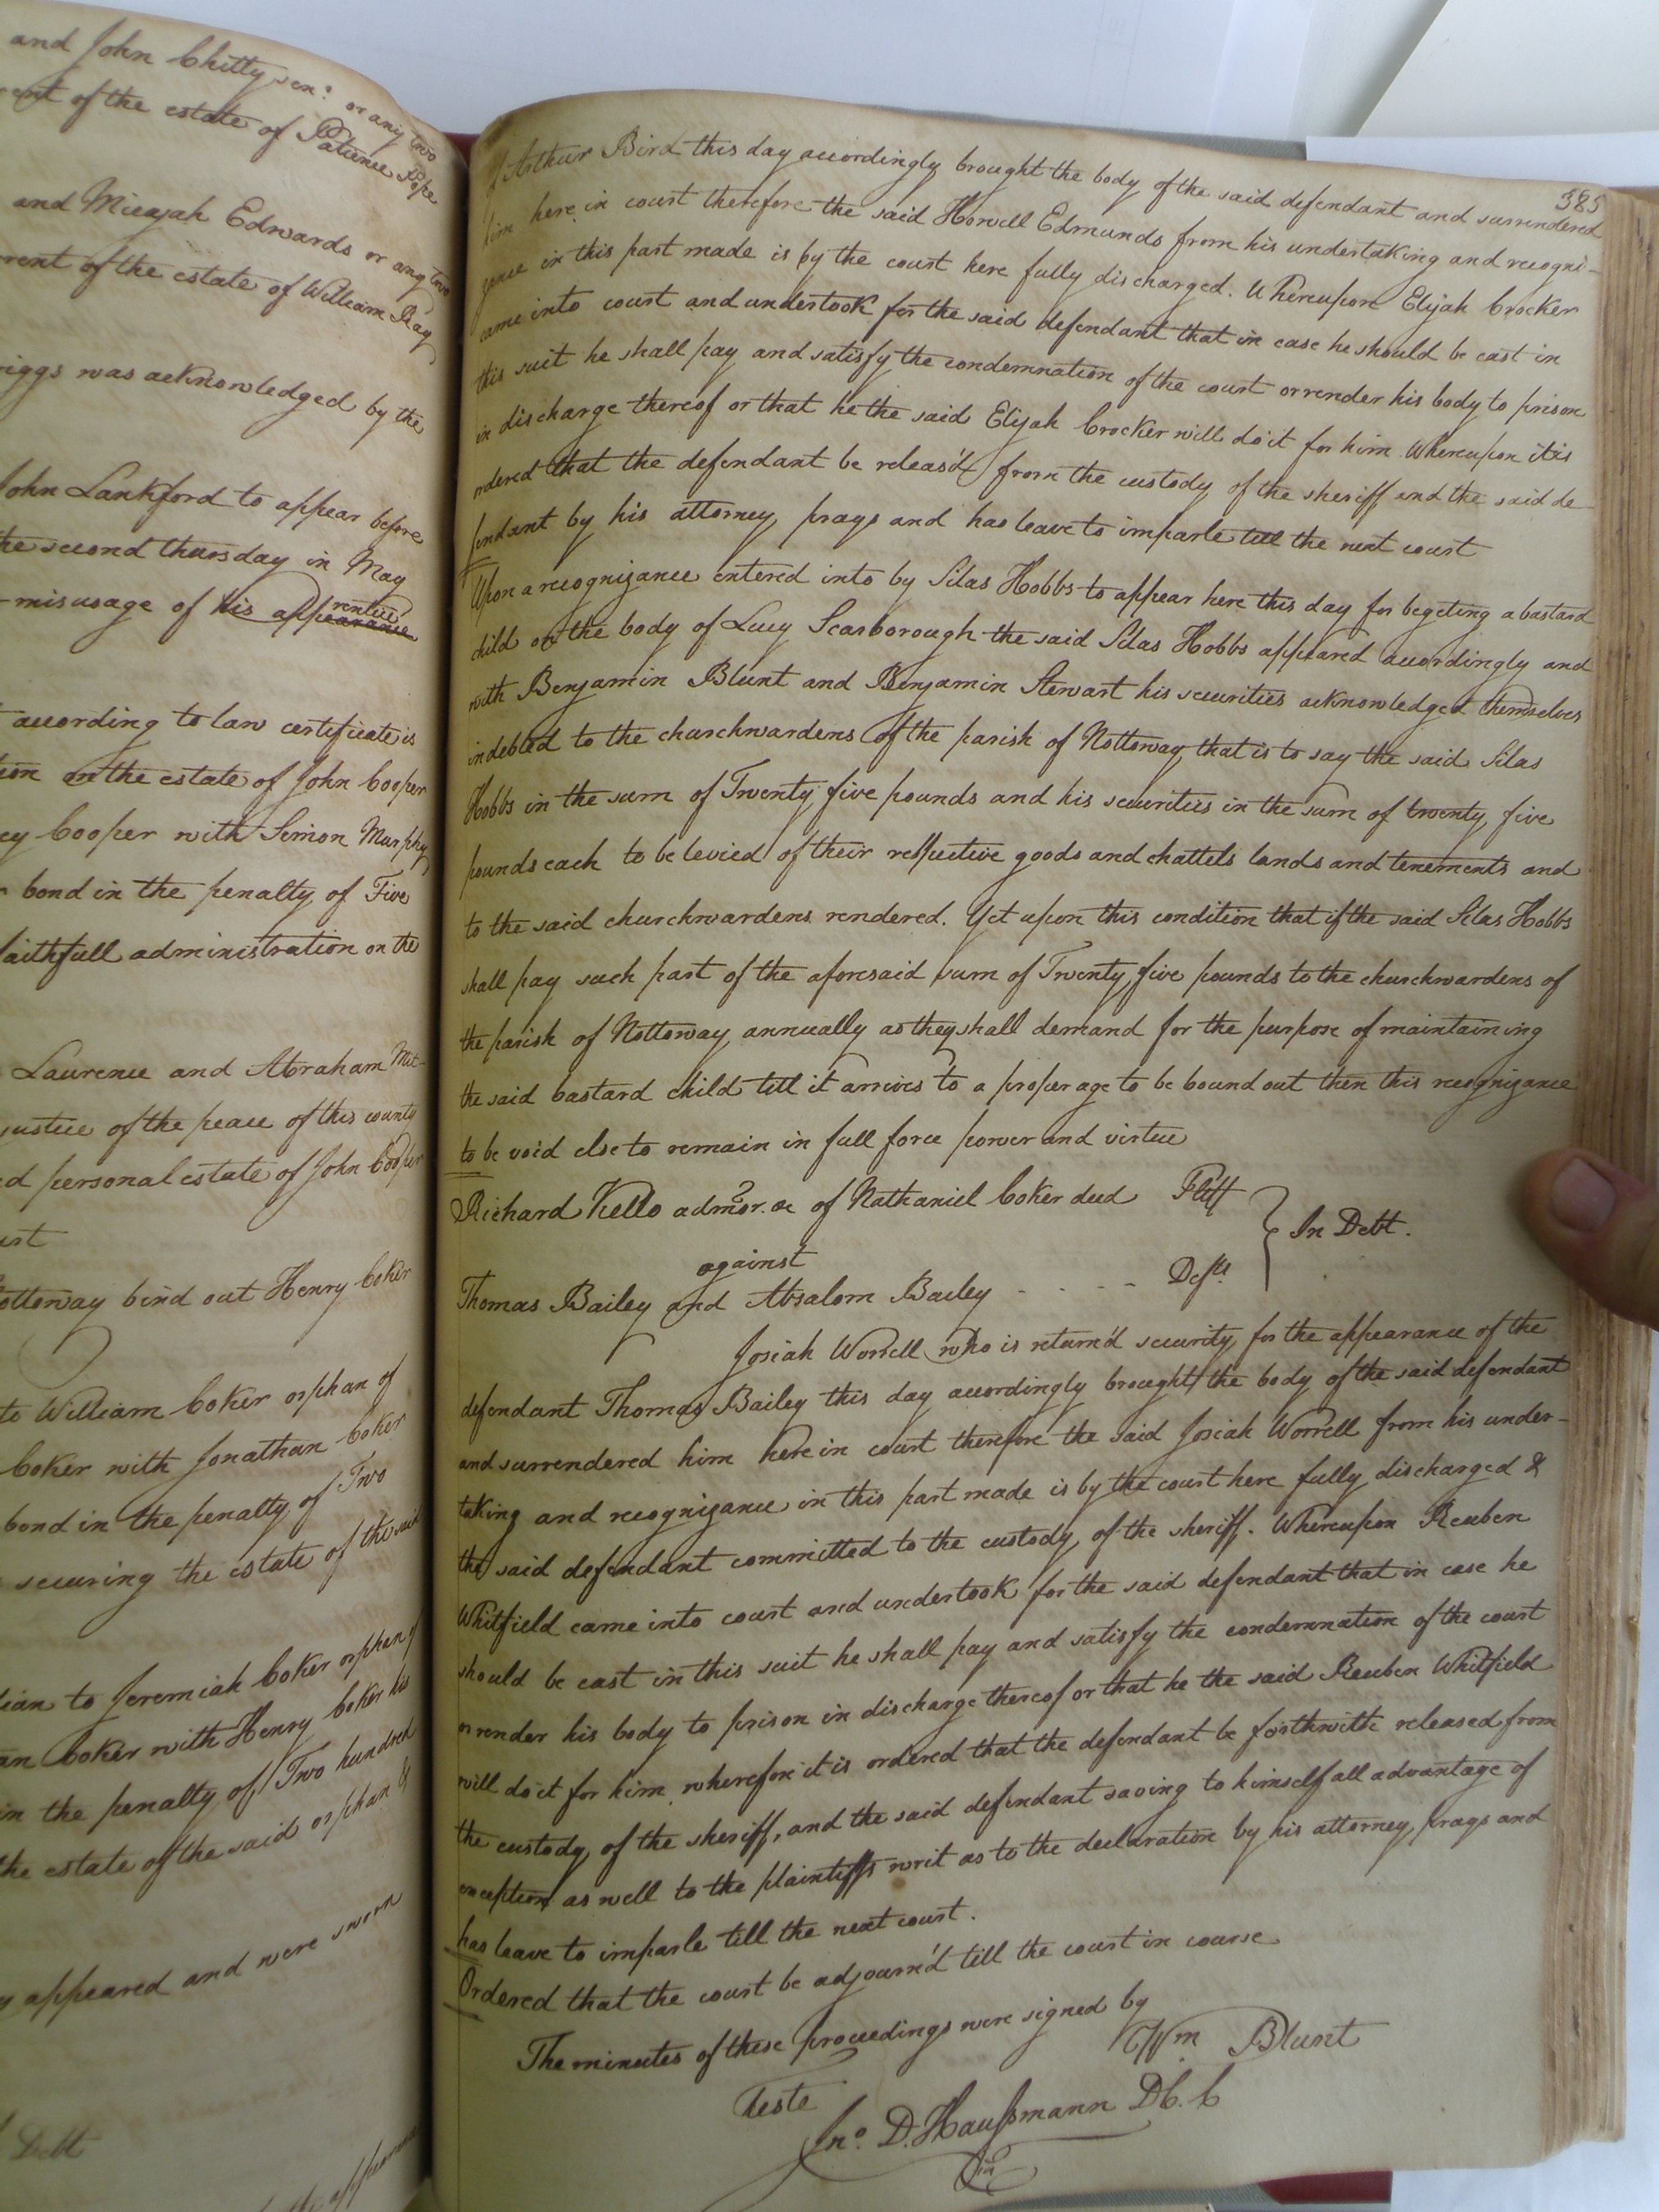 and John Chitty senr. or any two
of the estate of Patience Pope
and Micajah Edwards or any two
of the estate of William Ray
was acknowledged by the
John Lankford to appear before
the second thursday in May
misusage of his apprentice
according to law certificate is
on the estate of John Cooper
Cooper with Simon Murphy
bond in the penalty of Five
faithfull administration on the
Laurence and Abraham Mit-
justice of the peace of this county
personal estate of John Cooper
bind out Henry Coker
to William Coker orphan of
Coker with Jonathan Coker
bond in the penalty of Two
securing the estate of the said
to Jeremiah Coker orphan of
Coker with Henry Coker his
in the penalty of Two hundred
the estate of the said orphan &
appeared and were sworn
Debt
385
of Arthur Bird this day accordingly brought the body of the said defendant and surrendered
him here in court therefore the said Howell Edmunds from his undertaking and recogni-
zance in this part made is by the court here fully discharged. Whereupon Elijah Crocker
came into court and undertook for the said defendant that in case he should be cast in
this suit he shall pay and satisfy the condemnation of the court or render his body to prison
in discharge thereof or that he the said Elijah Crocker will do it for him Whereupon it is
ordered that the defendant be releas'd from the custody of the sheriff and the said de-
fendant by his attorney prays and has leave to imparle till the next court
Upon a recognizance entered into by Silas Hobbs to appear here this day for begeting a bastard
child on the body of Lucy Scarborough the said Silas Hobbs appeared accordingly and
with Benjamin Blunt and Benjamin Stewart his securities acknowledged themselves
indebted to the churchwardens of the parish of Nottoway that is to say the said Silas
Hobbs in the sum of Twenty five pounds and his securities in the sum of twenty five
pounds each to be levied of their respective goods and chattels lands and tenements and
to the said churchwardens rendered. Yet upon this condition that if the said Silas Hobbs
shall pay such part of the aforesaid sum of Twenty five pounds to the churchwardens of
the parish of Nottoway annually as they shall demand for the purpose of maintaining
the said bastard child till it arrives to a proper age to be bound out then this recognizance
to be void else to remain in full force power and virtue
Richard Kello admor. &c of Nathaniel Coker decd Pltff
against } In Debt.
Thomas Bailey and Absalom Bailey - - - - Defts.
Josiah Worrell who is return'd security for the appearance of the
defendant Thomas Bailey this day accordingly brought the body of the said defendant
and surrendered him here in court therefore the said Josiah Worrell from his under-
taking and recognizance in this part made is by the court here fully discharged &
the said defendant committed to the custody of the sheriff. Whereupon Reuben
Whitfield came into court and undertook for the said defendant that in case he
should be cast in this suit he shall pay and satisfy the condemnation of the court
or render his body to prison in discharge thereof or that he the said Reuben Whitfield
will do it for him wherefore it is ordered that the defendant be forthwith released from
the custody of the sheriff, and the said defendant saving to himself all advantage of
exception as well to the plaintiffs writ as to the declaration by his attorney prays and
has leave to imparle till the next court.
Ordered that the court be adjourn'd till the court in course
The minutes of these proceedings were signed by
Wm. Blunt
Teste
Jno. D. Haussmann D C. C